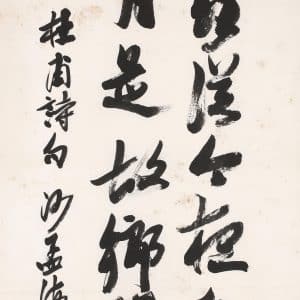 露從今夜
月是故鄉
杜甫詩句 沙孟海